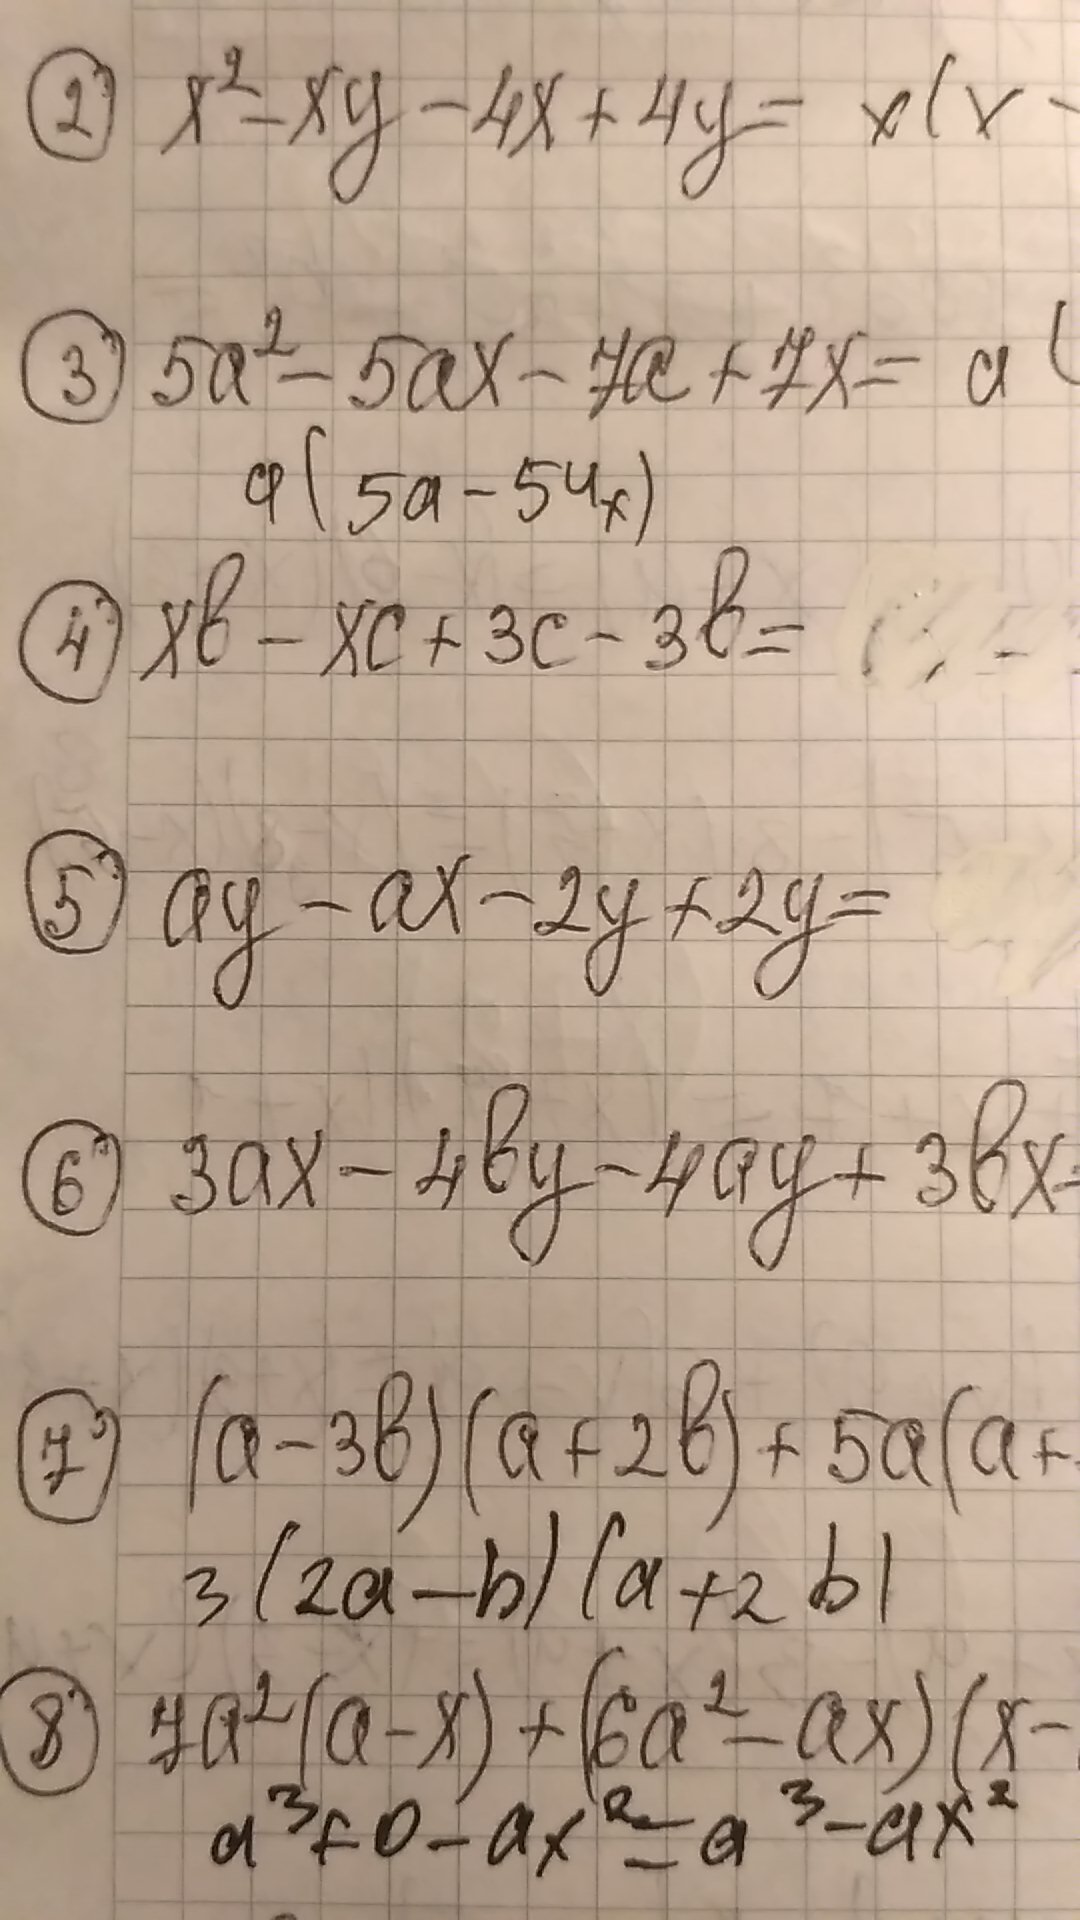 2) x² - xy - 4x + 4y = x(x -
3) 5a² - 5ax - 7a + 7x = a(
a(5a - 54x)
4) xb - xc + 3c - 3b =
5) ay - ax - 2y + 2y =
6) 3ax - 4by - 4ay + 3bx =
7) (a - 3b)(a + 2b) + 5a(a +
3(2a - b)(a + 2b)
8) 7a²(a - x) + (6a² - ax)(x -
a³ + 0 - ax² = a³ - ax²